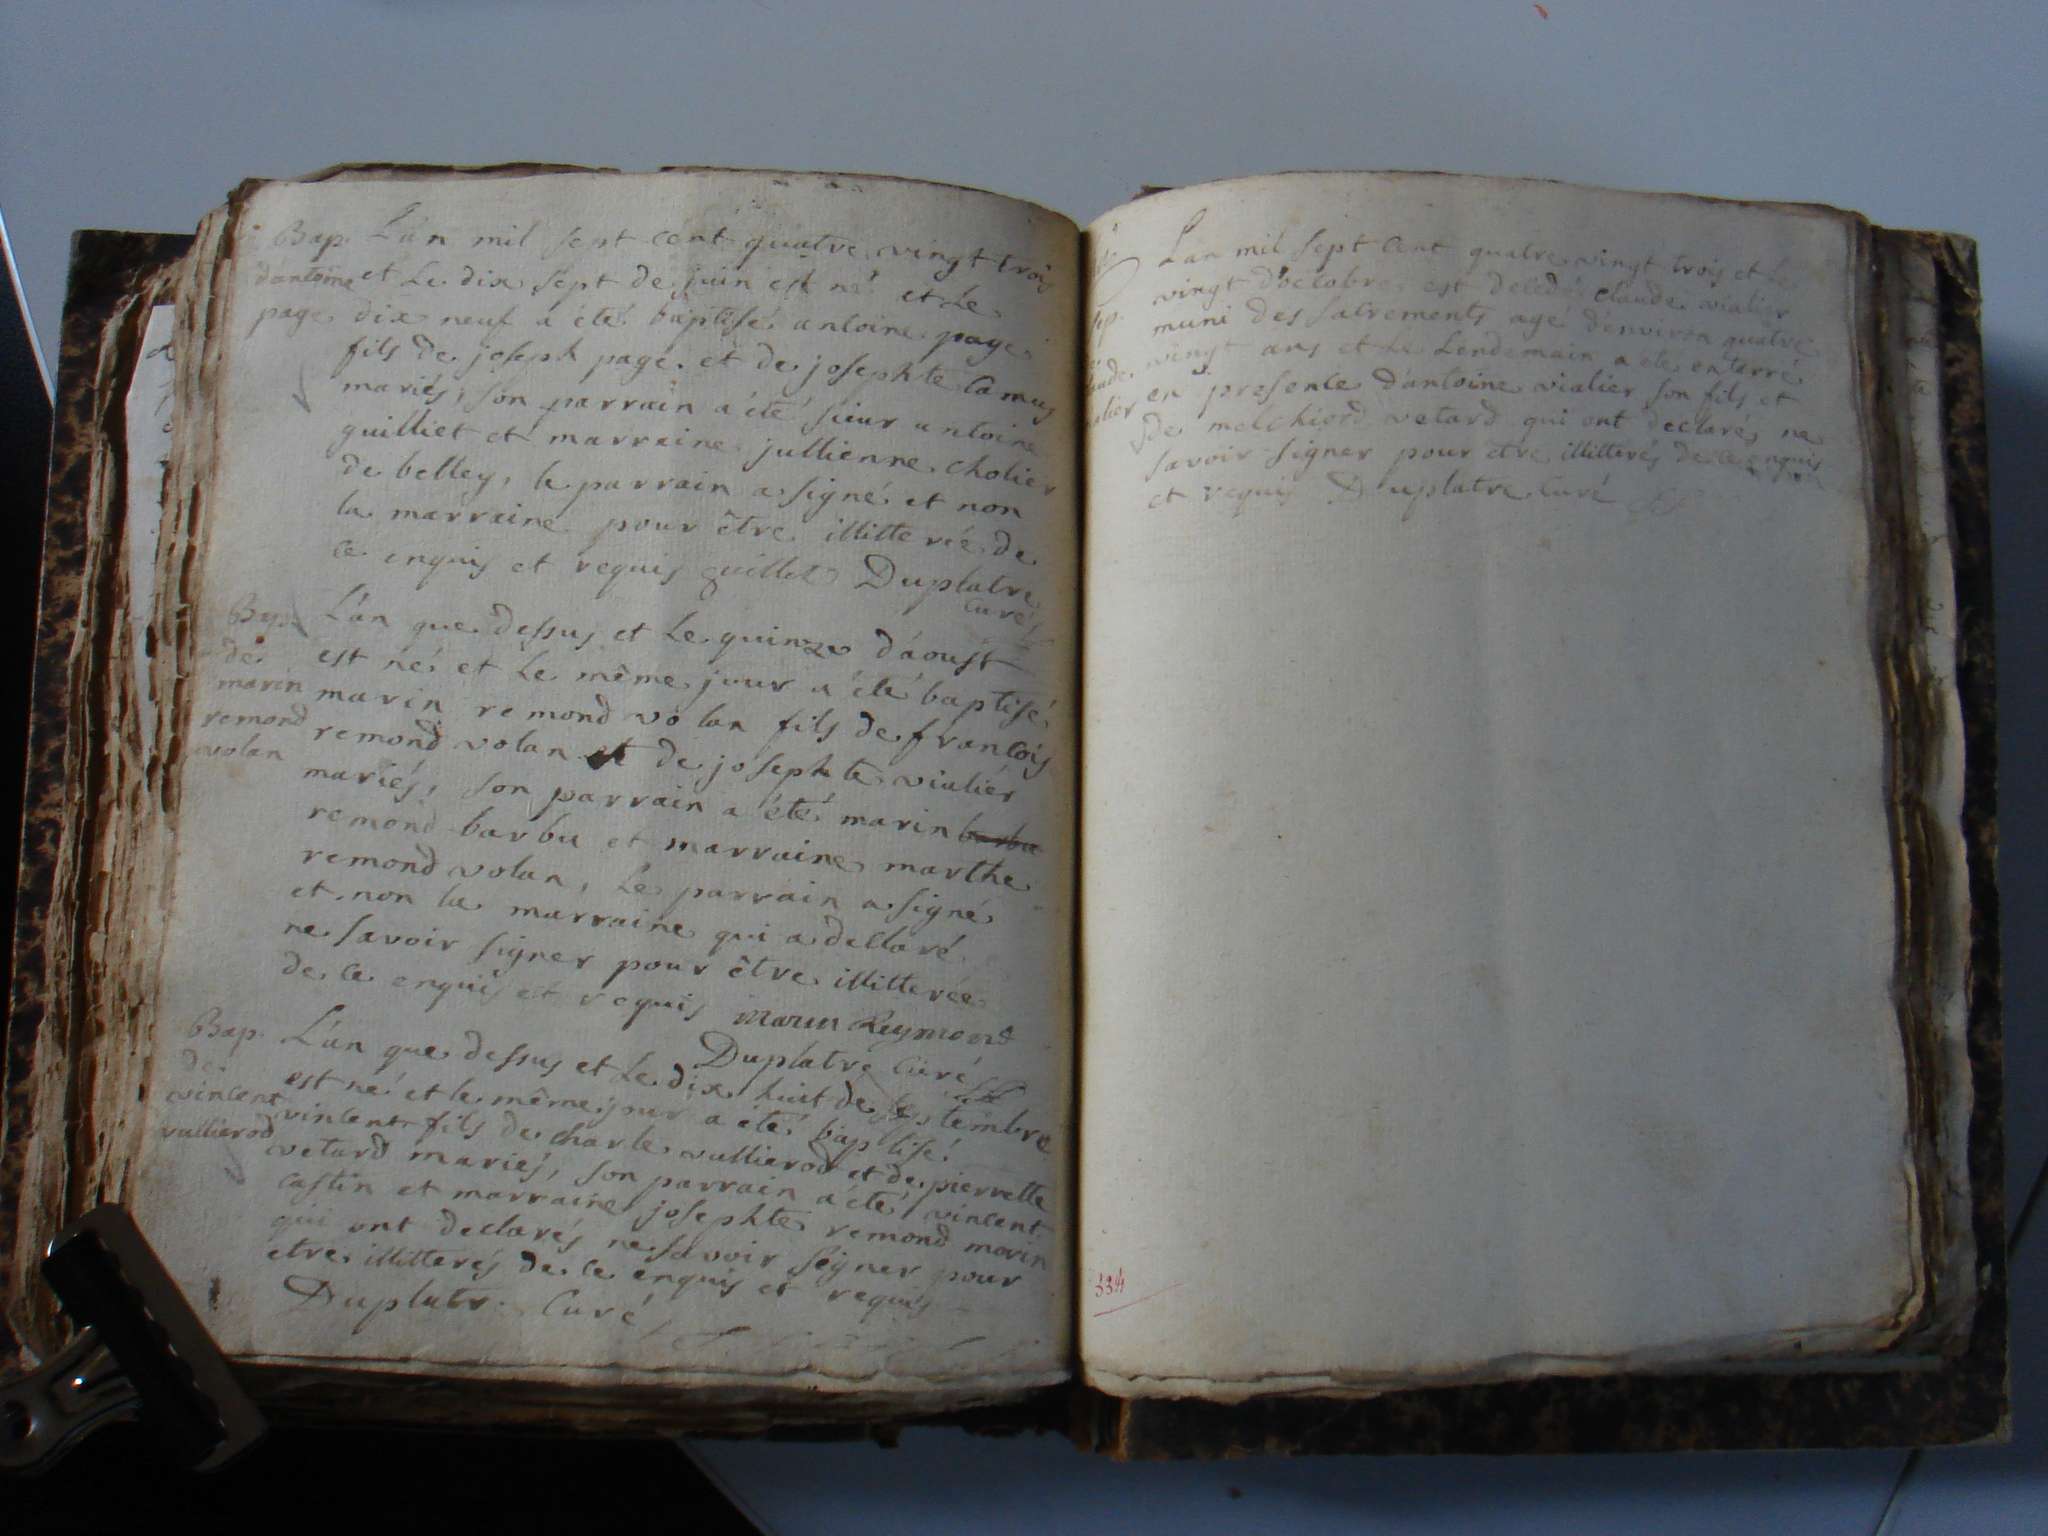 Bap. L'an mil sept cent quatre vingt trois
d'antoine et le dix sept de juin est né et le
page dix neuf a été baptisé antoine page
fils de joseph page et de josephte Camus
mariés, son parrain a été sieur antoine
guilliet et marraine jullienne cholier
de belley, le parrain a signé et non
la marraine pour être illitterée de
ce enquis et requis guillet Duplatre
Curé
Bap. L'an que dessus et le quinze d'aoust
de est né et le même jour a été baptisé
marin marin remond volan fils de francois
remond remond volan et de josephte vialier
volan mariés, son parrain a été marin barbu
remond barbu et marraine marthe
remond volan, le parrain a signé
et non la marraine qui a declaré
ne savoir signer pour être illitterée
de ce enquis et requis marin Reymond
Duplatre Curé
Bap. L'an que dessus et le dix huit de septembre
de est né et le même jour a été baptisé
vincent vincent fils de charle vullierod et de pierrette
vullierod vetard mariés, son parrain a été vincent
Castin et marraine josephte remond morin
qui ont declarés ne savoir signer pour
etre illitterés de ce enquis et requis
Duplatre Curé
L'an mil sept cent quatre vingt trois et le
vingt d'octobre est decedé claude vialier
sep. muni des sacrements agé d'environ quatre
vingt ans et le lendemain a été enterré
en presence d'antoine vialier son fils et
de melchiord vetard qui ont declarés ne
savoir signer pour etre illitterés de ce enquis
et requis Duplatre Curé
334